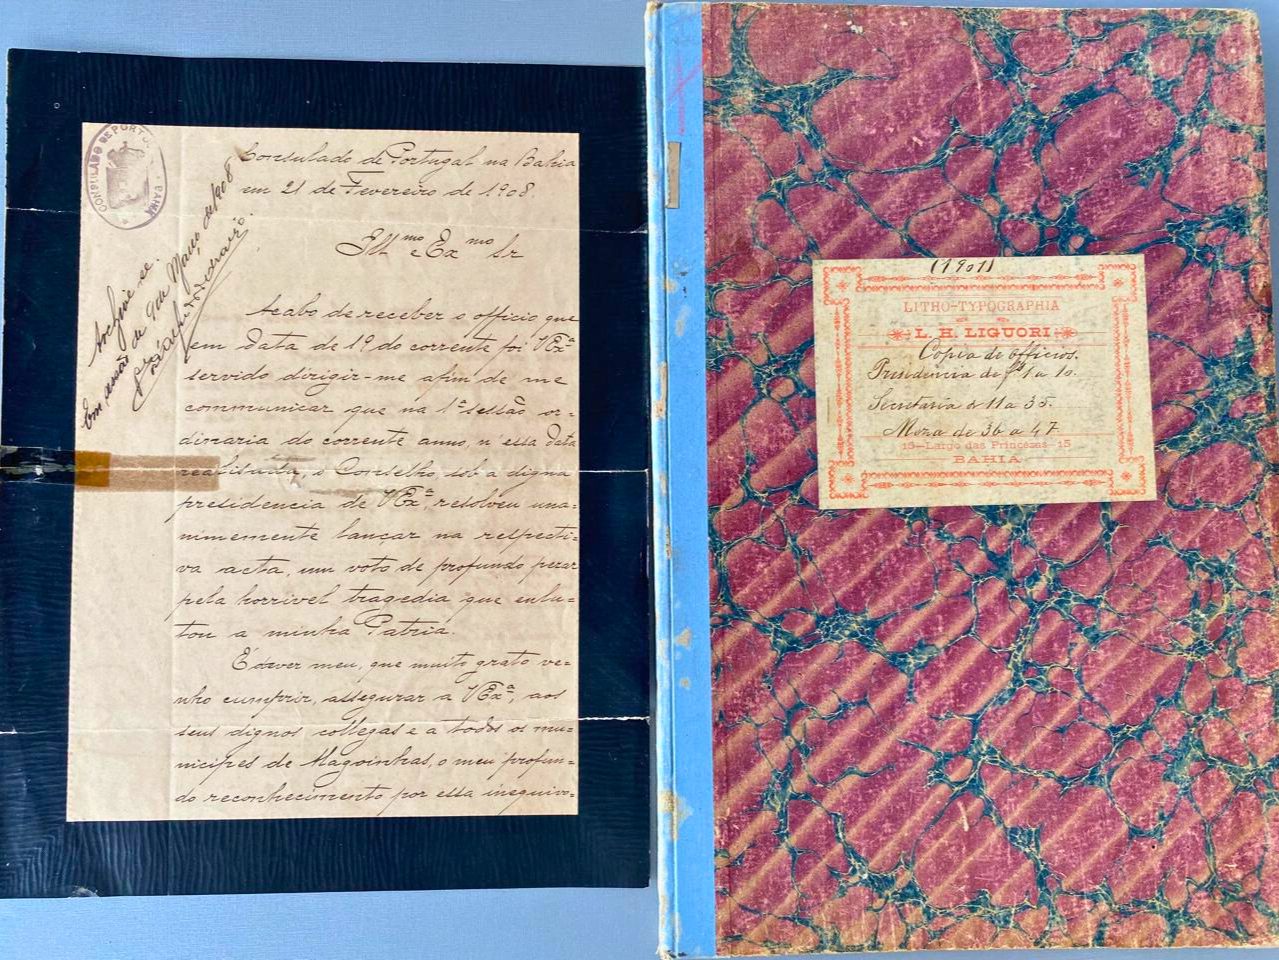 CONSULADO DE PORTUGAL
BAHIA
Consulado de Portugal na Bahia
em 21 de Fevereiro de 1908
Archive-se.
Em sessão de 9 de Março de 1908
Illmo e Exmo Sr
Acabo de receber o officio que
em data de 19 do corrente foi VExª
servido dirigir-me afim de me
communicar que na 1ª sessão or=
dinaria do corrente anno, n'essa data
realisada, o Conselho, sob a digna
presidencia de VExª, resolveu una=
nimemente lançar na respecti=
va acta, um voto de profundo pezar
pela horrivel tragedia que enlu=
tou a minha Patria.
É dever meu, que muito grato ve=
nho cumprir, assegurar a VExª, aos
seus dignos collegas e a todos os mu=
nicipes de Alagoinhas, o meu profun=
do reconhecimento por essa inequivo=
(1901)
LITHO-TYPOGRAPHIA
L. H. LIGUORI
Copia de officios.
Presidencia de fs 1 a 10.
Secretaria de 11 a 35.
Meza de 36 a 47
15-Largo das Princezas-15
BAHIA